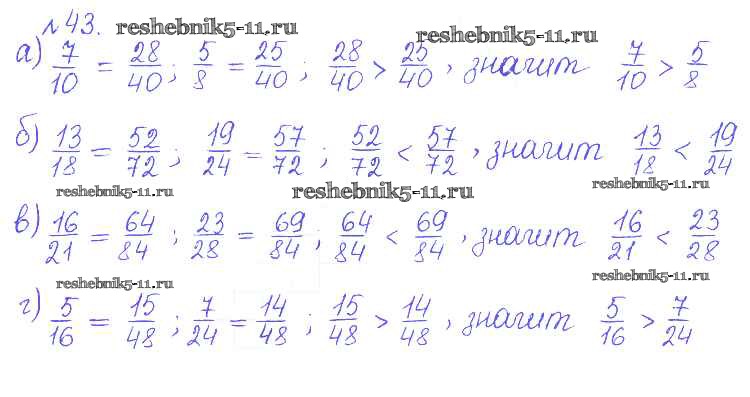 №43. reshebnik5-11.ru reshebnik5-11.ru
а) 7/10 = 28/40; 5/8 = 25/40; 28/40 > 25/40, значит 7/10 > 5/8
б) 13/18 = 52/72; 19/24 = 57/72; 52/72 < 57/72, значит 13/18 < 19/24
reshebnik5-11.ru reshebnik5-11.ru reshebnik5-11.ru
в) 16/21 = 64/84; 23/28 = 69/84; 64/84 < 69/84, значит 16/21 < 23/28
reshebnik5-11.ru reshebnik5-11.ru
г) 5/16 = 15/48; 7/24 = 14/48; 15/48 > 14/48, значит 5/16 > 7/24